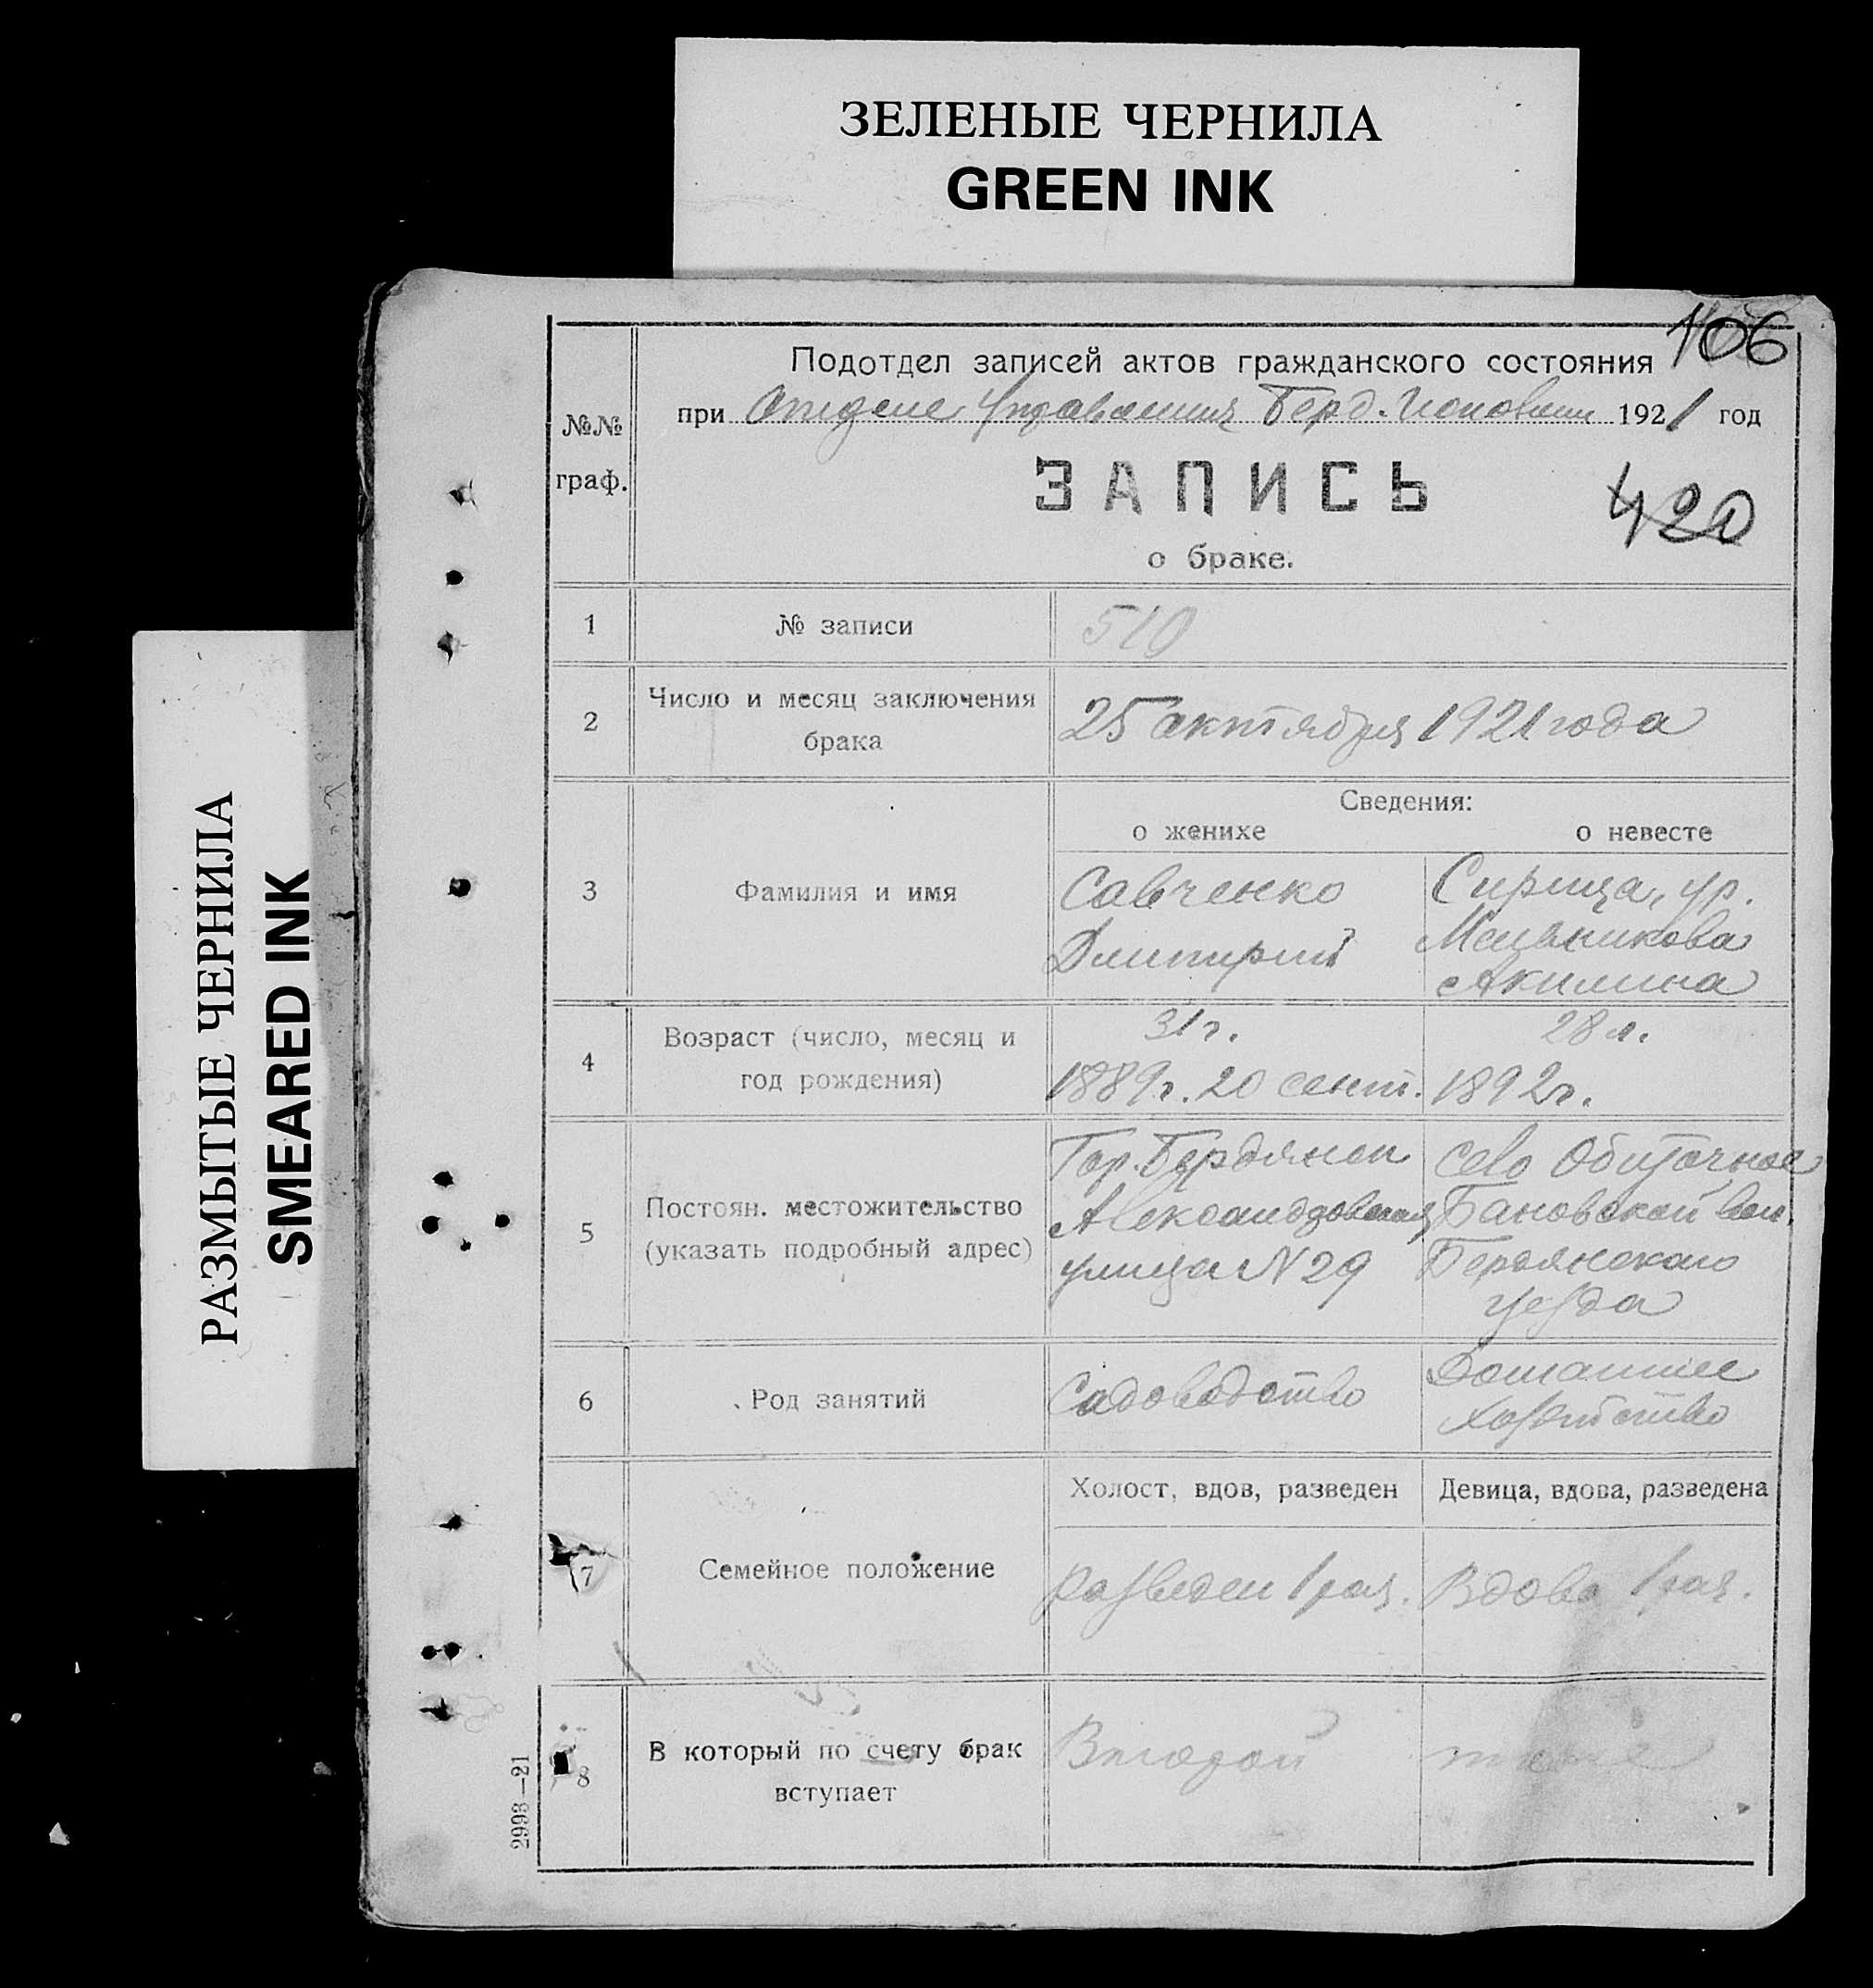 ЗЕЛЕНЫЕ ЧЕРНИЛА
GREEN INK
РАЗМЫТЫЕ ЧЕРНИЛА
SMEARED INK
106
№№ граф.
Подотдел записей актов гражданского состояния
при Отделе Управления Берд. 1921 год
ЗАПИСЬ
420
о браке.
1 № записи 510
2 Число и месяц заключения брака 25 октября 1921 года
Сведения:
о женихе о невесте
3 Фамилия и имя
Савченко Сирица, ур.
Дмитрий Мельникова
Акилина
4 Возраст (число, месяц и год рождения)
31 г. 28 л.
1889 г. 20 сент. 1892 г.
5 Постоян. местожительство (указать подробный адрес)
Гор. Бердянск село Обиточное
Александровская Бановской вол.
улица N 29 Бердянского
уезда
6 Род занятий
Садоводство Домашнее
хозяйство
Холост, вдов, разведен Девица, вдова, разведена
7 Семейное положение
разведен 1 раз. Вдова 1 раз.
8 В который по счету брак вступает
Второй тоже
2993—21